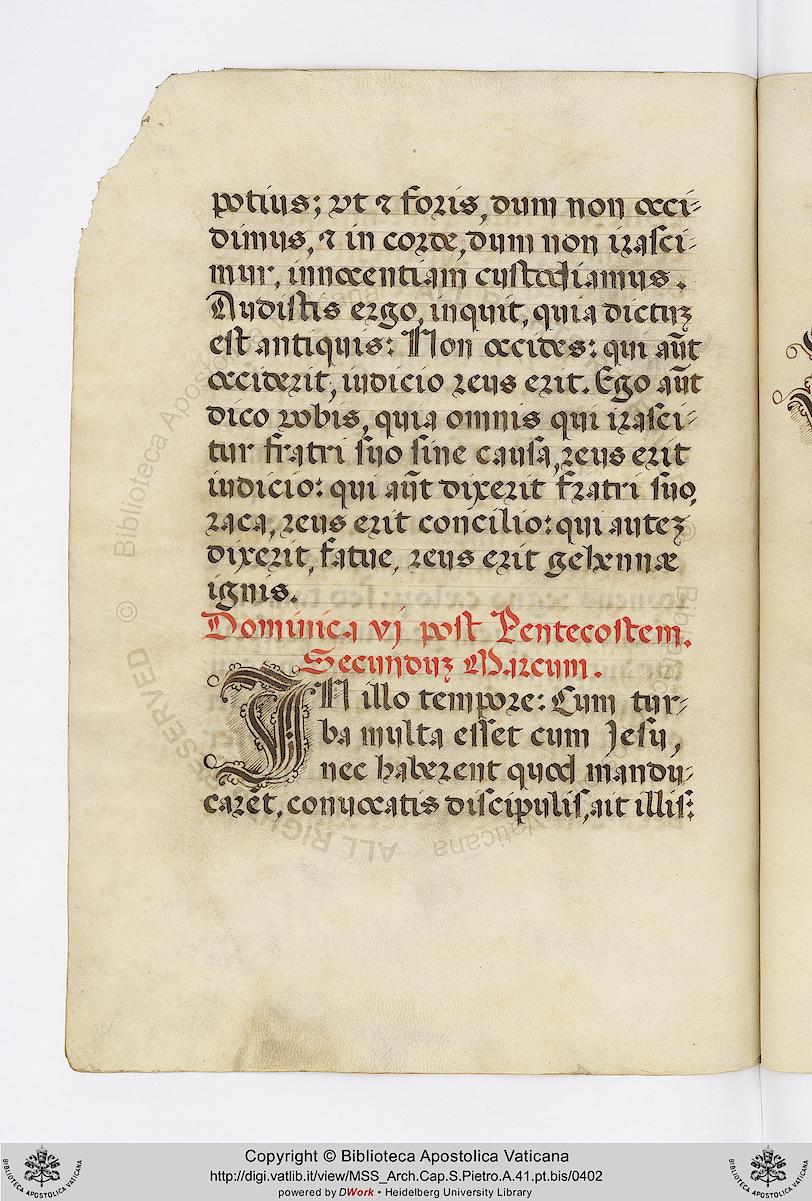 potius; vt ⁊ foris, dum non occi-
dimus, ⁊ in corde, dum non irasci-
mur, innocentiam custodiamus.
Audistis ergo, inquit, quia dictuȝ
est antiquis: Non occides: qui aūt
occiderit, iudicio reus erit. Ego aūt
dico vobis, quia omnis qui irasci-
tur fratri suo sine causa, reus erit
iudicio: qui aūt dixerit fratri suo,
raca, reus erit concilio: qui auteȝ
dixerit, fatue, reus erit gehennæ
ignis.
Dominica vj post Pentecostem.
Secunduȝ Marcum.
IN illo tempore: Cum tur-
ba multa esset cum Jesu,
nec haberent quod mandu-
carēt, conuocatis discipulis, ait illis:
© Biblioteca Apostolica Vaticana
ALL RIGHTS RESERVED
Copyright © Biblioteca Apostolica Vaticana
http://digi.vatlib.it/view/MSS_Arch.Cap.S.Pietro.A.41.pt.bis/0402
powered by DWork • Heidelberg University Library
BIBLIOTECA APOSTOLICA VATICANA
BIBLIOTECA APOSTOLICA VATICANA